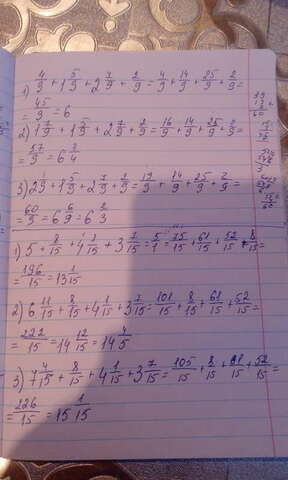 1) 4/9 + 1 5/9 + 2 7/9 + 2/9 = 4/9 + 14/9 + 25/9 + 2/9 =
= 45/9 = 6
2) 1 7/9 + 1 5/9 + 2 7/9 + 2/9 = 16/9 + 14/9 + 25/9 + 2/9 =
= 57/9 = 6 3/4
3) 2 1/9 + 1 5/9 + 2 7/9 + 2/9 = 19/9 + 14/9 + 25/9 + 2/9 =
= 60/9 = 6 6/9 = 6 2/3
1) 5 + 8/15 + 4 1/15 + 3 7/15 = 5/1 = 75/15 + 61/15 + 52/15 + 8/15 =
= 196/15 = 13 1/15
2) 6 11/15 + 8/15 + 4 1/15 + 3 7/15 = 101/15 + 8/15 + 61/15 + 52/15 =
= 222/15 = 14 12/15 = 14 4/5
3) 7 4/15 + 8/15 + 4 1/15 + 3 7/15 = 105/15 + 8/15 + 61/15 + 52/15 =
= 226/15 = 15 1/15